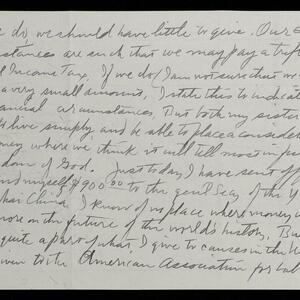 e do, we should have little to give. Our
stances are such that we may pay a trif
l Income Tax. If we do I am not sure that we
a very small amount. I state this to indicate
ancial circumstances. But both my sister
live simply, and be able to place a consider
money where we think it will tell most in
dom of God. Just today I have sent off
and myself $900.00 to the Gen'l Sec'y of the Y
hai China. I know of no place where money w
more on the future of the world's history. Bu
quite a part of what I give to causes in the U
given to the American Association for Lab